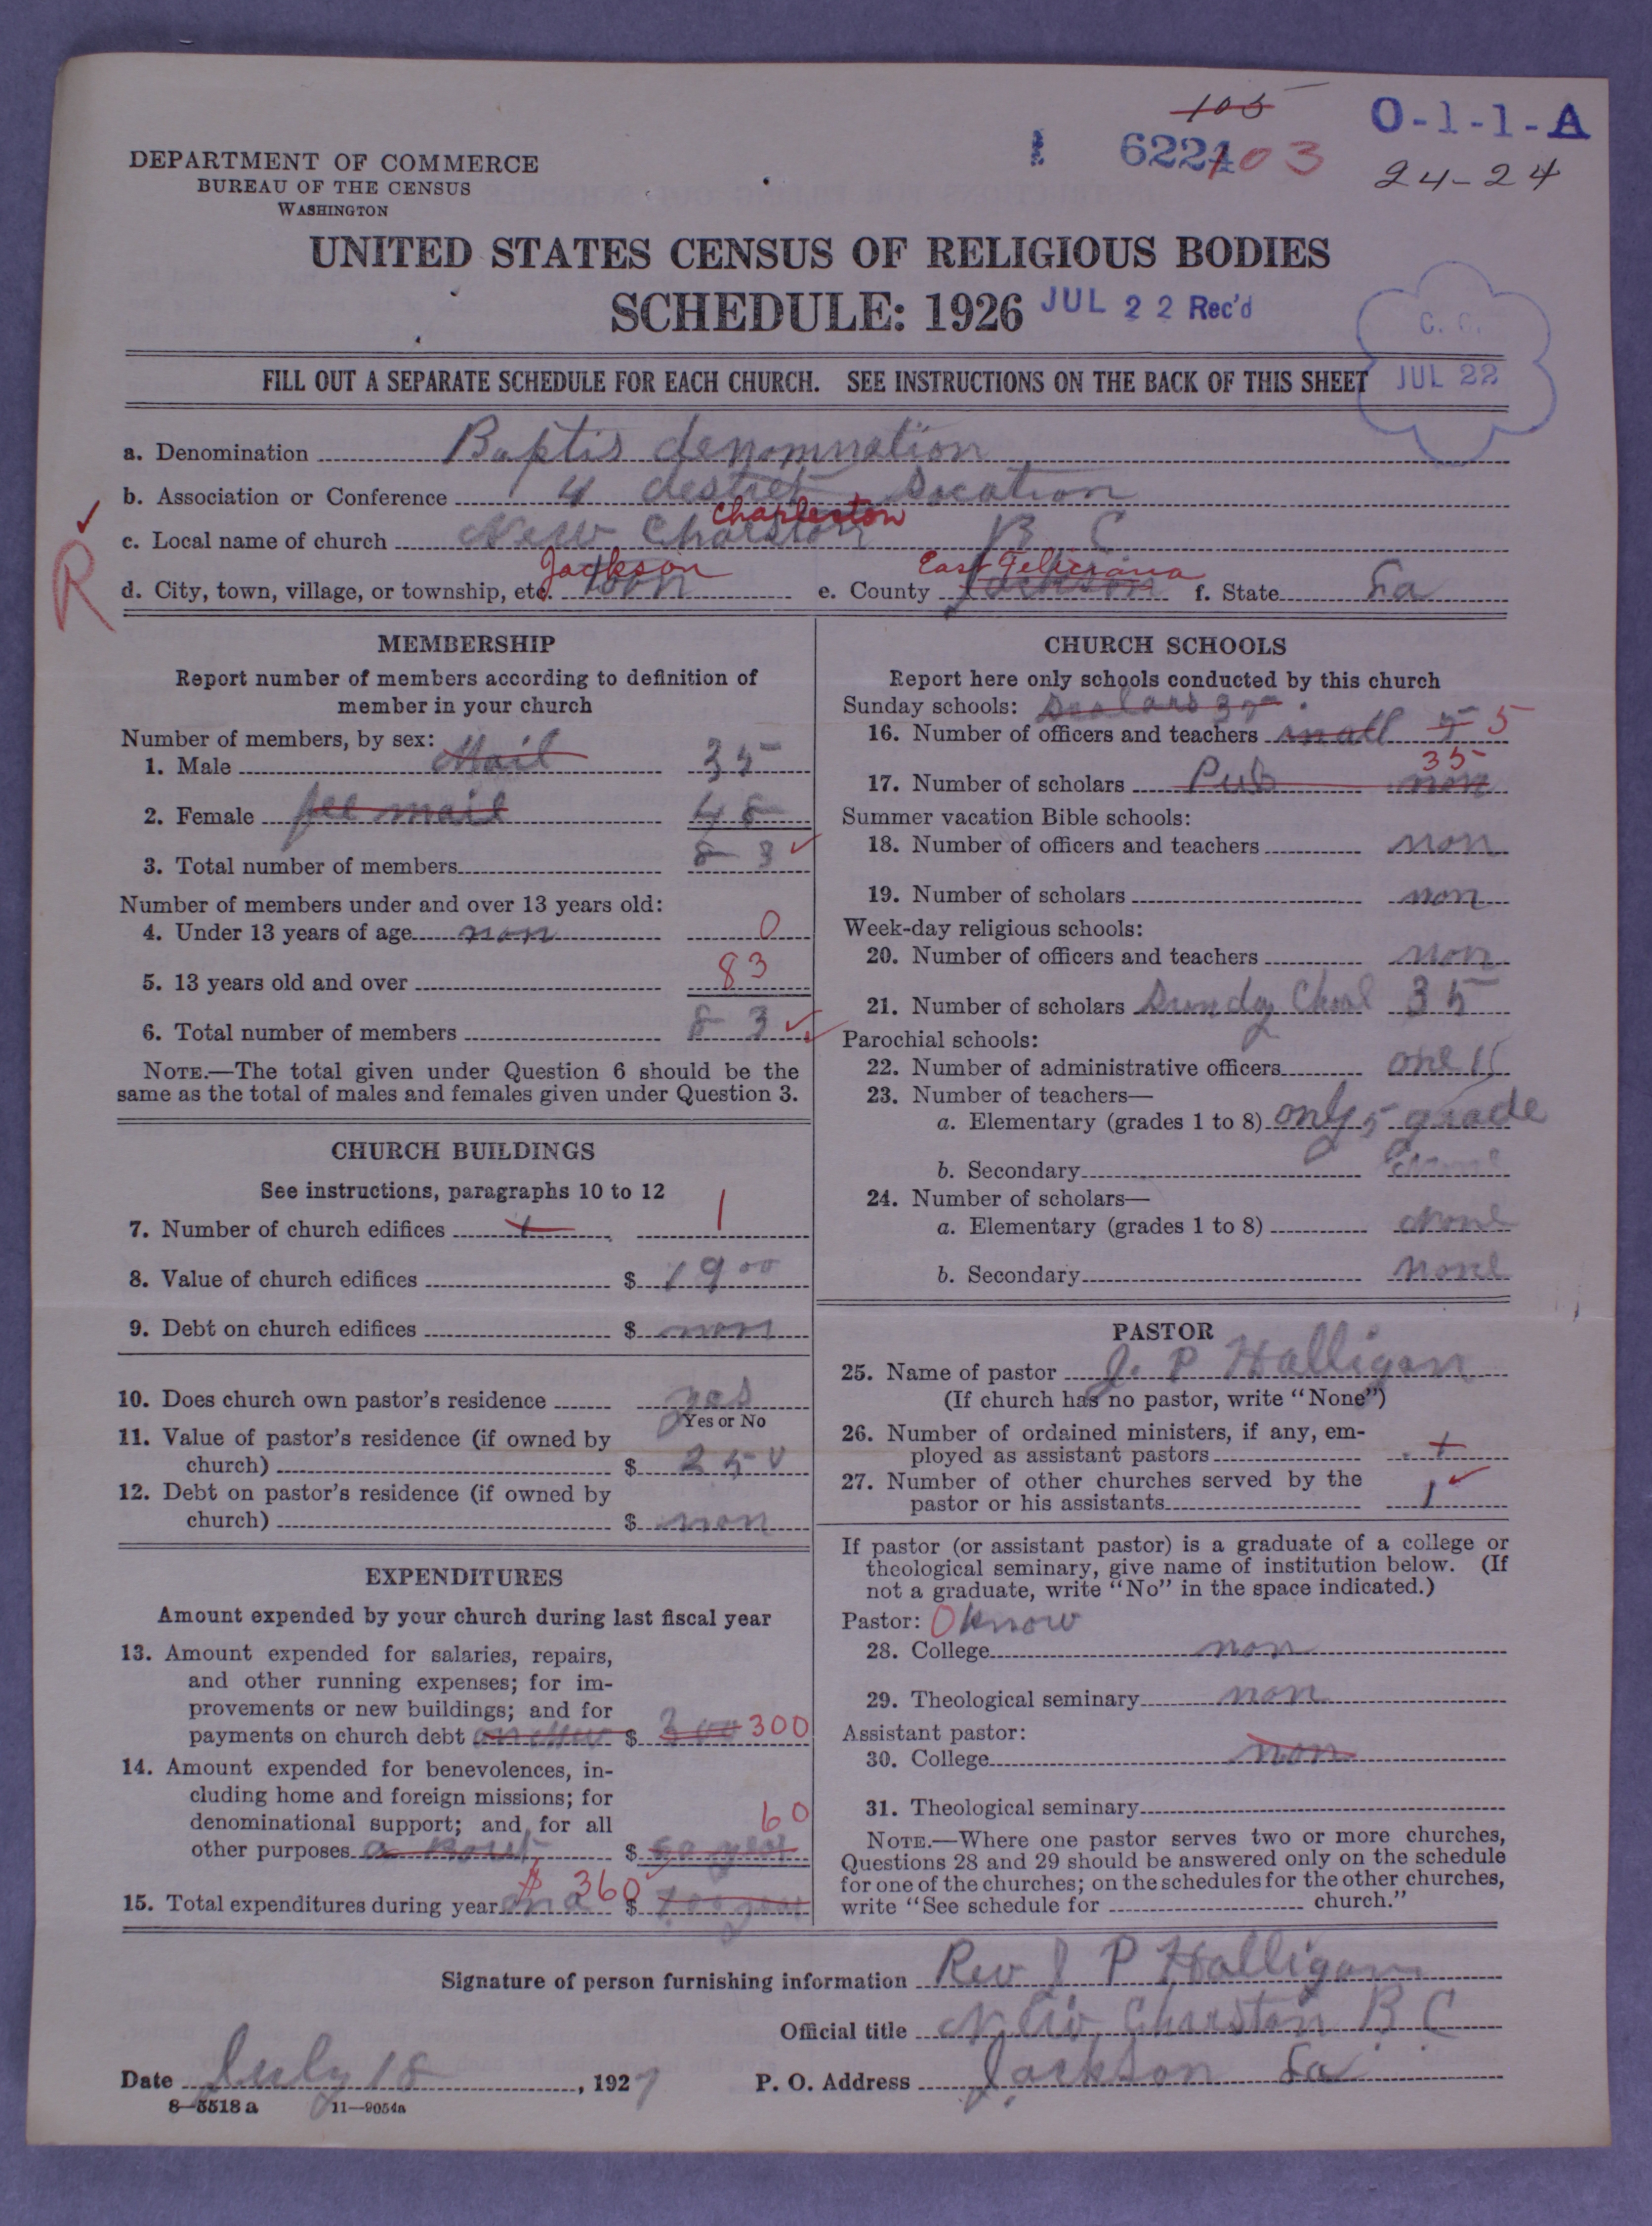 105
1 6221 103
O-1-1-A
24-24
DEPARTMENT OF COMMERCE
BUREAU OF THE CENSUS
WASHINGTON
UNITED STATES CENSUS OF RELIGIOUS BODIES
SCHEDULE: 1926 JUL 22 Rec'd
C. C.
JUL 22
FILL OUT A SEPARATE SCHEDULE FOR EACH CHURCH. SEE INSTRUCTIONS ON THE BACK OF THIS SHEET
a. Denomination Baptis denomnation
b. Association or Conference 4 destrct
Charleston
c. Local name of church New Charston B C
R
Jackson East Feliciana
d. City, town, village, or township, etc. toon e. County Jackson f. State La
MEMBERSHIP
Report number of members according to definition of
member in your church
Number of members, by sex:
1. Male Mail 35
2. Female fee mail 48
3. Total number of members 83
Number of members under and over 13 years old:
4. Under 13 years of age non 0
5. 13 years old and over 83
6. Total number of members 83
NOTE.—The total given under Question 6 should be the
same as the total of males and females given under Question 3.
CHURCH BUILDINGS
See instructions, paragraphs 10 to 12
7. Number of church edifices 1 1
8. Value of church edifices $ 1900
9. Debt on church edifices $ non
10. Does church own pastor's residence yes
Yes or No
11. Value of pastor's residence (if owned by
church) $ 250
12. Debt on pastor's residence (if owned by
church) $ non
EXPENDITURES
Amount expended by your church during last fiscal year
13. Amount expended for salaries, repairs,
and other running expenses; for im-
provements or new buildings; and for
payments on church debt $ 300 300
14. Amount expended for benevolences, in-
cluding home and foreign missions; for
denominational support; and for all
60
other purposes a bout $ 60 year
$ 360
15. Total expenditures during year $ year
CHURCH SCHOOLS
Report here only schools conducted by this church
Sunday schools: 35
16. Number of officers and teachers in all 5 5
35
17. Number of scholars Pub non
Summer vacation Bible schools:
18. Number of officers and teachers non
19. Number of scholars non
Week-day religious schools:
20. Number of officers and teachers non
21. Number of scholars Sunday Chool 35
Parochial schools:
22. Number of administrative officers one
23. Number of teachers—
a. Elementary (grades 1 to 8) only 5 grade
b. Secondary none
24. Number of scholars—
a. Elementary (grades 1 to 8) none
b. Secondary none
PASTOR
25. Name of pastor J. P Halligan
(If church has no pastor, write "None")
26. Number of ordained ministers, if any, em-
ployed as assistant pastors
27. Number of other churches served by the
pastor or his assistants 1
If pastor (or assistant pastor) is a graduate of a college or
theological seminary, give name of institution below. (If
not a graduate, write "No" in the space indicated.)
Pastor: O know
28. College non
29. Theological seminary non
Assistant pastor:
30. College non
31. Theological seminary
NOTE.—Where one pastor serves two or more churches,
Questions 28 and 29 should be answered only on the schedule
for one of the churches; on the schedules for the other churches,
write "See schedule for church."
Signature of person furnishing information Rev J P Halligan
Official title New Charston B C
Date July 18, 1927 P. O. Address Jackson La
8—5518 a 11—9054a